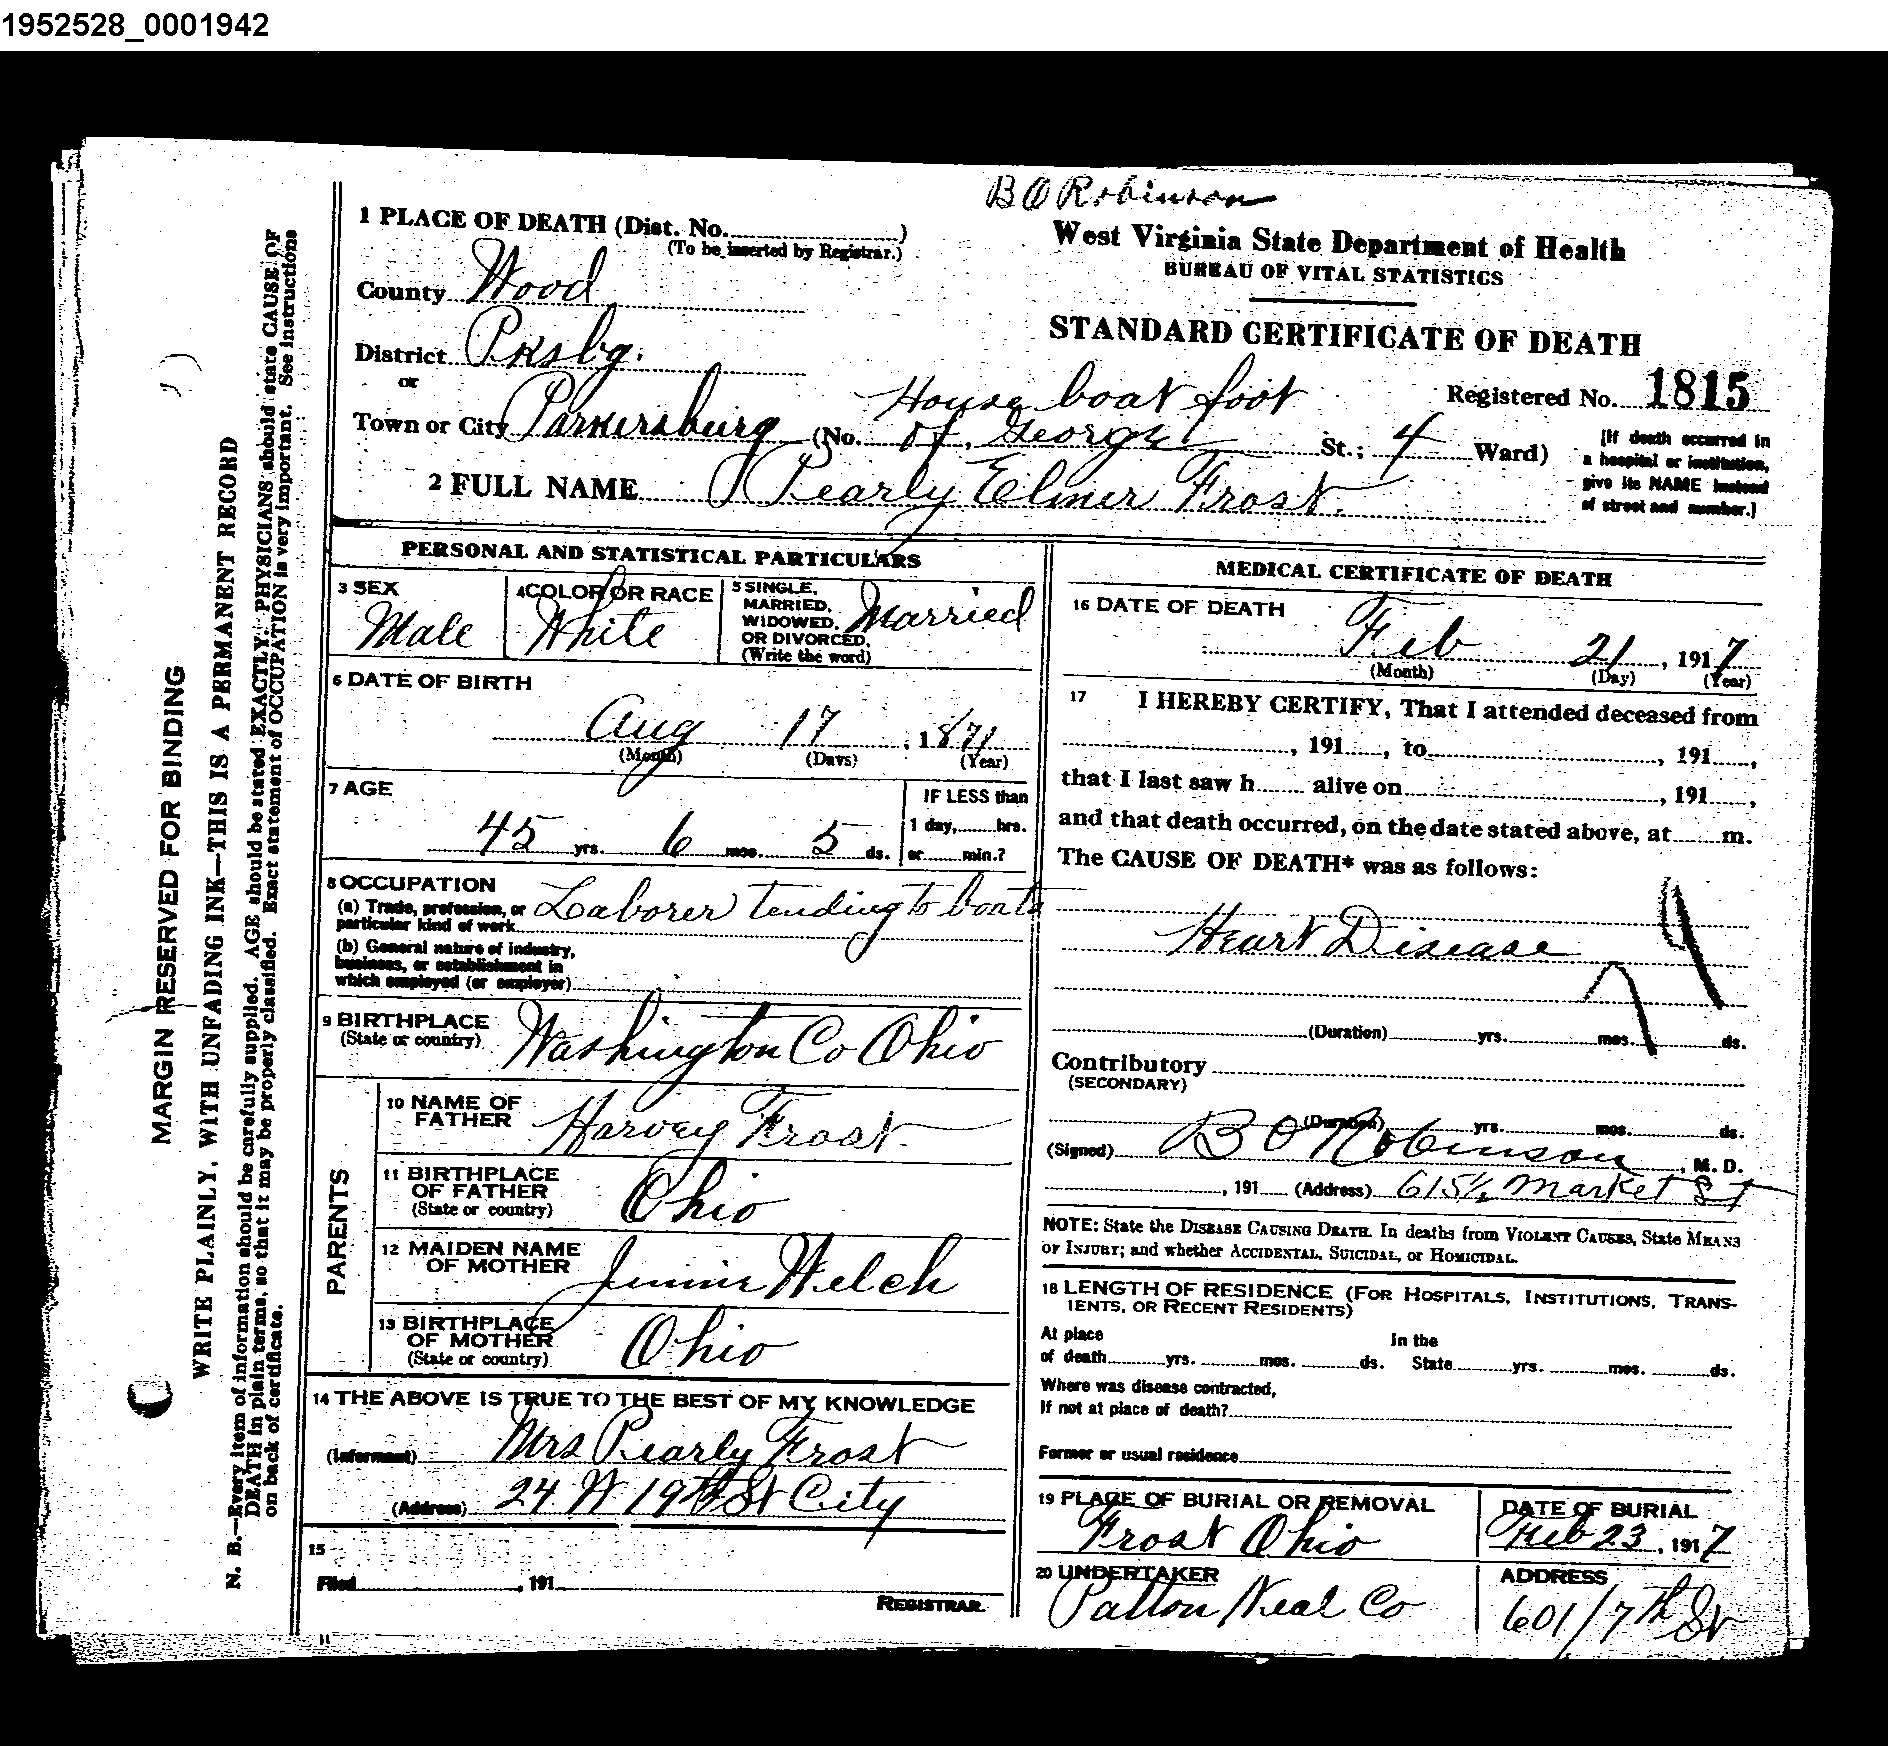 1952528_0001942
B O Robinson
1 PLACE OF DEATH (Dist. No.)
(To be inserted by Registrar.)
County Wood
District Pksbg.
or
Town or City Parkersburg (No. House boat foot of George St.; 4 Ward)
2 FULL NAME Pearly Elmer Frost.
West Virginia State Department of Health
BUREAU OF VITAL STATISTICS
STANDARD CERTIFICATE OF DEATH
Registered No. 1815
[If death occurred in
a hospital or institution,
give its NAME instead
of street and number.]
PERSONAL AND STATISTICAL PARTICULARS
3 SEX
Male
4 COLOR OR RACE
White
5 SINGLE,
MARRIED,
WIDOWED,
OR DIVORCED,
(Write the word)
Married
6 DATE OF BIRTH
Aug 17, 1871
(Month) (Days) (Year)
7 AGE
45 yrs. 6 mos. 5 ds.
IF LESS than
1 day, hrs.
or min.?
8 OCCUPATION
(a) Trade, profession, or
particular kind of work
Laborer tending to boats
(b) General nature of industry,
business, or establishment in
which employed (or employer)
9 BIRTHPLACE
(State or country)
Washington Co Ohio
PARENTS
10 NAME OF
FATHER
Harvey Frost.
11 BIRTHPLACE
OF FATHER
(State or country)
Ohio
12 MAIDEN NAME
OF MOTHER
Jennie Welch
13 BIRTHPLACE
OF MOTHER
(State or country)
Ohio
14 THE ABOVE IS TRUE TO THE BEST OF MY KNOWLEDGE
(Informant) Mrs Pearly Frost
(Address) 24 W 19th St City
15
Filed , 191
REGISTRAR.
11
MEDICAL CERTIFICATE OF DEATH
16 DATE OF DEATH
Feb 21, 1917
(Month) (Day) (Year)
17 I HEREBY CERTIFY, That I attended deceased from
, 191 , to , 191 ,
that I last saw h alive on , 191 ,
and that death occurred, on the date stated above, at m.
The CAUSE OF DEATH* was as follows:
Heart Disease
(Duration) yrs. mos. ds.
Contributory
(SECONDARY)
(Duration) yrs. mos. ds.
(Signed) B O Robinson, M. D.
, 191 (Address) 615½ Market St
NOTE: State the DISEASE CAUSING DEATH. In deaths from VIOLENT CAUSES, State MEANS
OF INJURY; and whether ACCIDENTAL, SUICIDAL, or HOMICIDAL.
18 LENGTH OF RESIDENCE (FOR HOSPITALS, INSTITUTIONS, TRANS-
IENTS, OR RECENT RESIDENTS)
At place In the
of death yrs. mos. ds. State yrs. mos. ds.
Where was disease contracted,
If not at place of death?
Former or usual residence
19 PLACE OF BURIAL OR REMOVAL
Frost Ohio
DATE OF BURIAL
Feb 23, 1917
20 UNDERTAKER
Patton Neal Co
ADDRESS
601/7th St
MARGIN RESERVED FOR BINDING
WRITE PLAINLY, WITH UNFADING INK—THIS IS A PERMANENT RECORD
N. B.—Every item of information should be carefully supplied. AGE should be stated EXACTLY. PHYSICIANS should state CAUSE OF
DEATH in plain terms, so that it may be properly classified. Exact statement of OCCUPATION is very important. See instructions
on back of certificate.